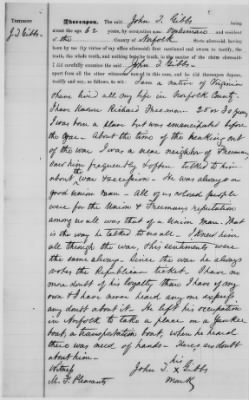 TESTIMONY
J. T. Gibbs
Thereupon, The said John T. Gibbs being
about the age 62 years, by occupation an Oysterman, and resident
at this County of Norfolk there aforesaid having
been by me (by virtue of my office aforesaid) first cautioned and sworn to testify the
truth, the whole truth, and nothing but the truth, in the matter of the claim aforesaid:
I did carefully examine the said John T. Gibbs
apart from all the other witnesses named in this case, and he did thereupon depose,
testify and say, as follows, to wit: I am a native of Virginia
I have lived all my life in Norfolk County.
I have known Richard Freeman 25 or 30 years.
I was born a slave but was emancipated before
the war. About the time of the breaking out
of the war I was a near neighbor of Freeman,
saw him frequently & often talked to him
about the war & secession. He was always a
good union man. All of us colored people
were for the Union & Freeman's reputation
among us all was that of a Union man. That
is the way he talked to us all. I knew him
all through the war, his sentiments were
the same always. Since the war he always
votes the Republican ticket. I have no
more doubt of his loyalty than I have of my
own & I have never heard any one express
any doubt about it. He left his occupation
in Norfolk to take a place on a Yankee
boat, a transportation boat, when he heard
they was need of hands. There is no doubt
about him.
his
John T. x Gibbs
mark
Witness
M. F. Pleasants